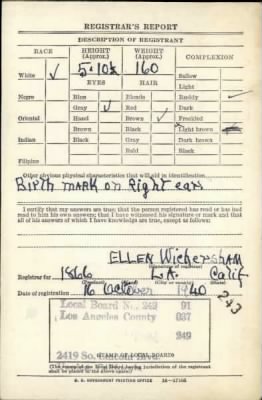 REGISTRAR'S REPORT
DESCRIPTION OF REGISTRANT
RACE HEIGHT (Approx.) WEIGHT (Approx.) COMPLEXION
White ✓ 5-10½ 160 Sallow
EYES HAIR Light
Negro Blue Blonde Ruddy ✓
Gray ✓ Red Dark
Oriental Hazel Brown ✓ Freckled
Brown Black Light brown
Indian Black Gray Dark brown
Bald Black
Filipino
Other obvious physical characteristics that will aid in identification
Birth mark on Right ear
I certify that my answers are true; that the person registered has read or has had
read to him his own answers; that I have witnessed his signature or mark and that
all of his answers of which I have knowledge are true, except as follows:
ELLEN Wickersham
(Signature of registrar)
Registrar for 1866 L.A. Calif
(City or county)
Date of registration 16 October 1940
243
Local Board No. 243 91
Los Angeles County 037
249
2419 So. Blvd.
STAMP OF LOCAL BOARD
(The stamp of the Local Board having jurisdiction of the registrant shall
be placed in the above space.)
U. S. GOVERNMENT PRINTING OFFICE 16-17105